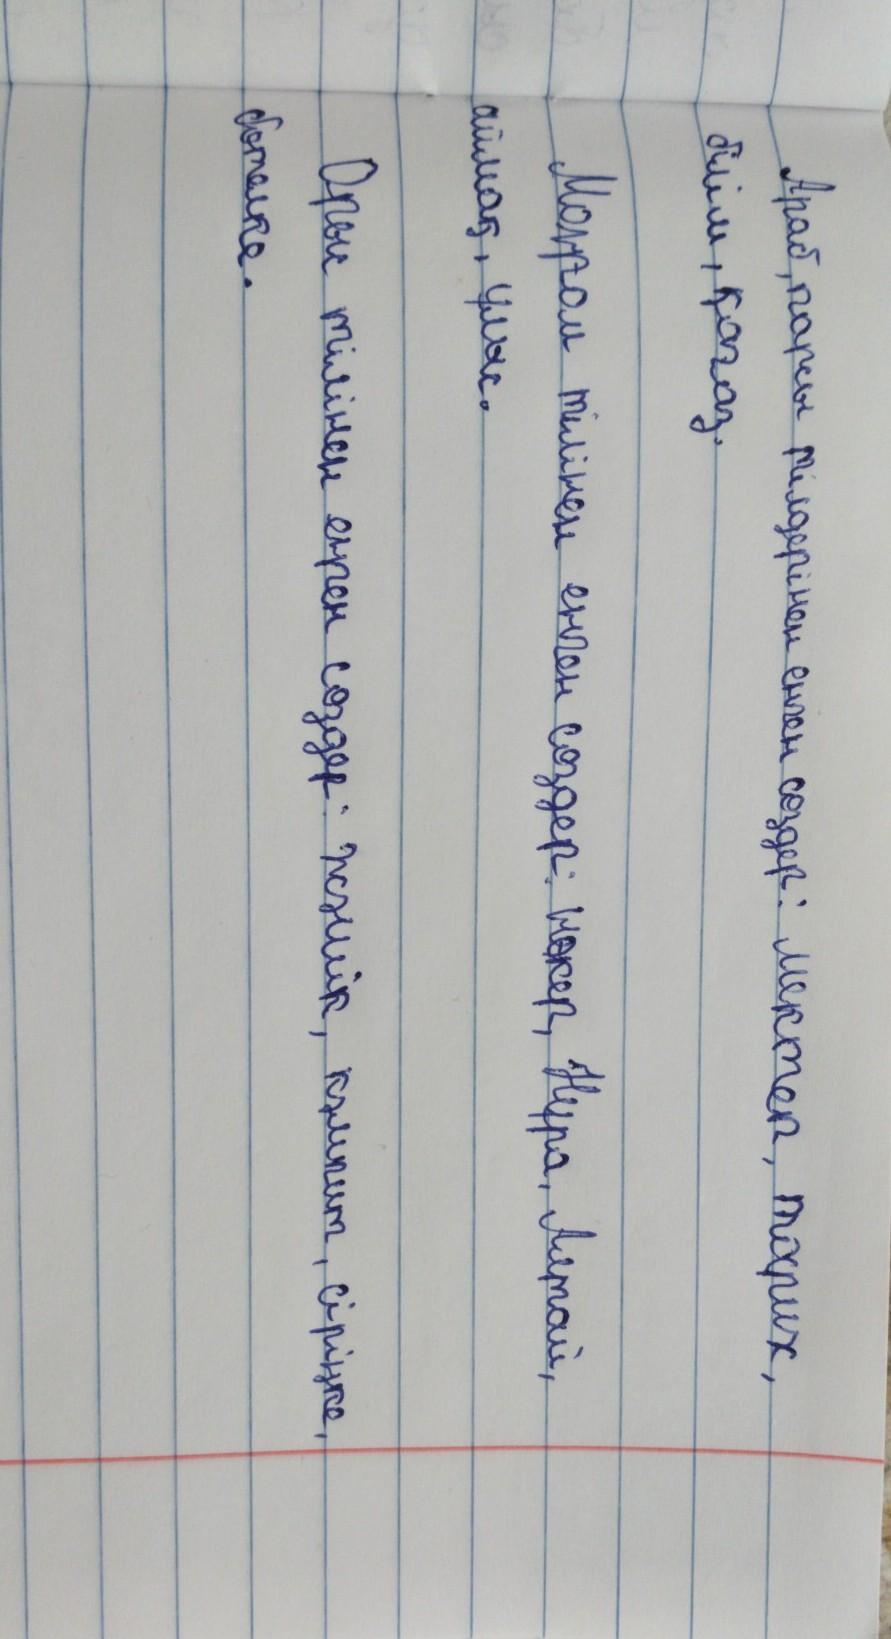 Араб, парсы тілдерінен енген создер: мектеп, тарих,
білім, қағаз.
Моңғол тілінен енген создер: нөкер, Нура, Алтай,
аймақ, ұлыс.
Орыс тілінен енген создер: пәшік, кәмпит, сіріңке,
ботелке.